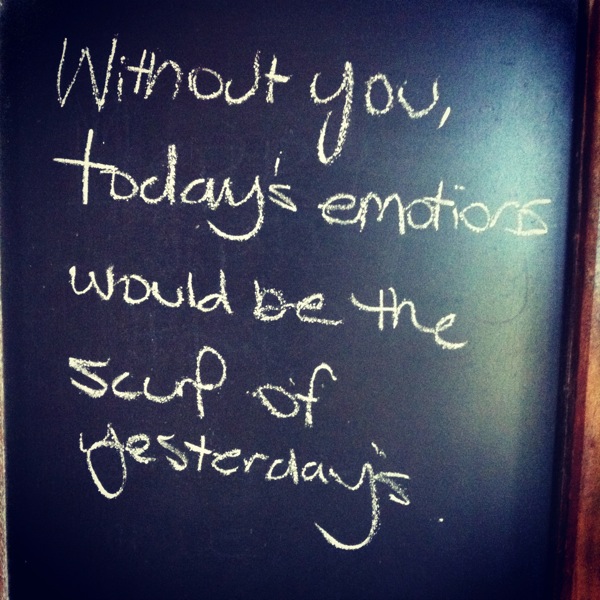 Without you,
today's emotions
would be the
scurf of
yesterday's.